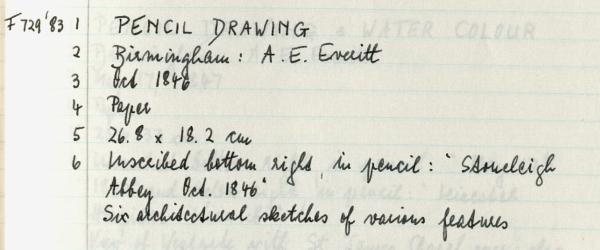 F729'83 1 PENCIL DRAWING
2 Birmingham: A.E. Everitt
3 Oct 1846
4 Paper
5 26.8 x 18.2 cm
6 Inscribed bottom right, in pencil: 'Stoneleigh
Abbey Oct. 1846'
Six architectural sketches of various features